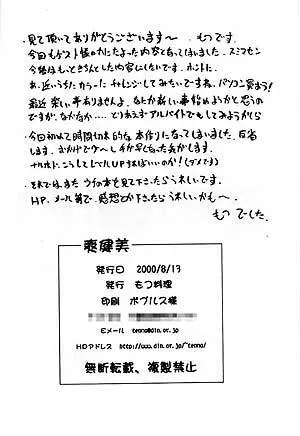 ・見て頂いてありがとうございます〜　もつです。
今回もゲスト様のかたよった内容となってしまいました。スミマセン
今後はもっときちんとした内容にしたいです。ホントに。
あ、近いうちにカラーにチャレンジしてみたいですね、パソコン買おう!
最近 楽しい事ありませんよ、なにか新しい事始めようかと思うの
ですが、なかなか…。とりあえずアルバイトでもしてみようかしら
・今回初めて時間切れ的な本作りになってしまいました、反省
します。おかげで少〜し手が早くなった気がします。
ナルホド、こうしてレベルUPすればいいのか!(ダメです)
・それではまた ウチの本を見て下さったらうれしいです。
HP、メール等で、感想とか下さったらうれしいかも〜。
もつ でした。
表健美
発行日　2000/8/13
発行　もつ料理
印刷　ポプルス様
Eメール　temo@din.or.jp
HPアドレス　http://www.din.or.jp/~temo/
無断転載、複製禁止